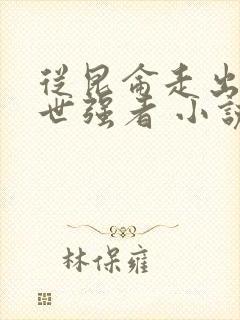 從昆侖走出
世强者 小說
林保雍